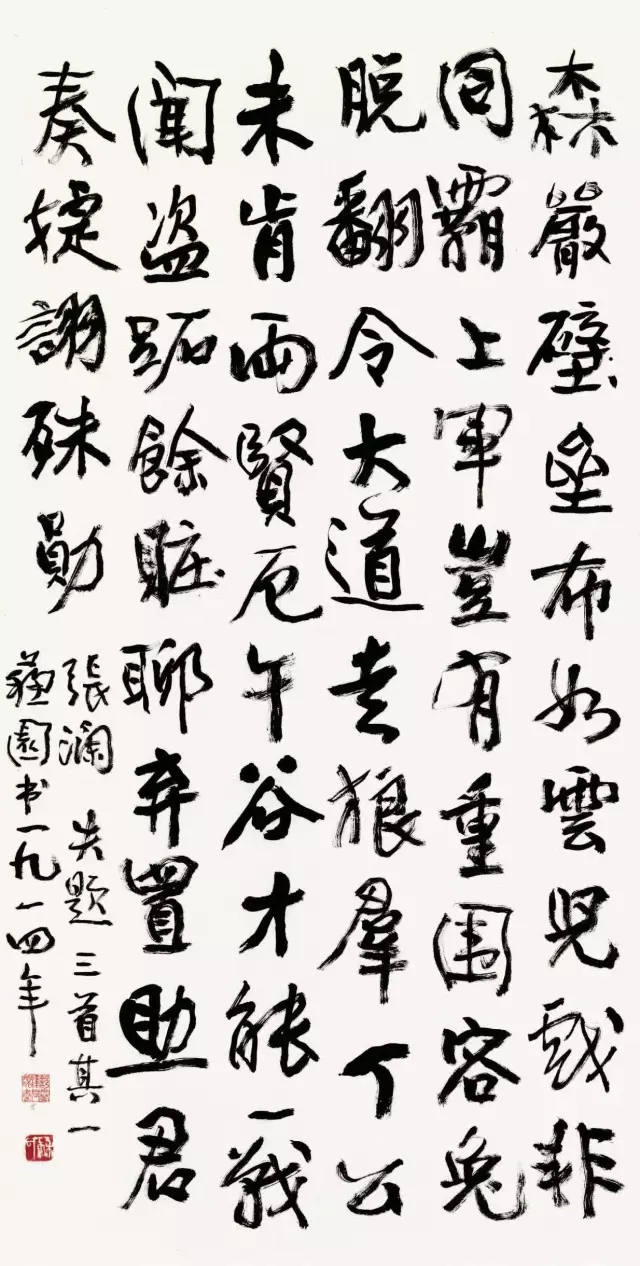 森嚴壁壘布如雲兒戲非
同霸上軍豈有重围容兔
脫翻令大道走狼羣丁公
未肯兩賢厄午谷才能一戰
聞盜跖餘賍聊弃置助君
奏捷謝殊勛
張澜 失题三首其一
園书一九一四年